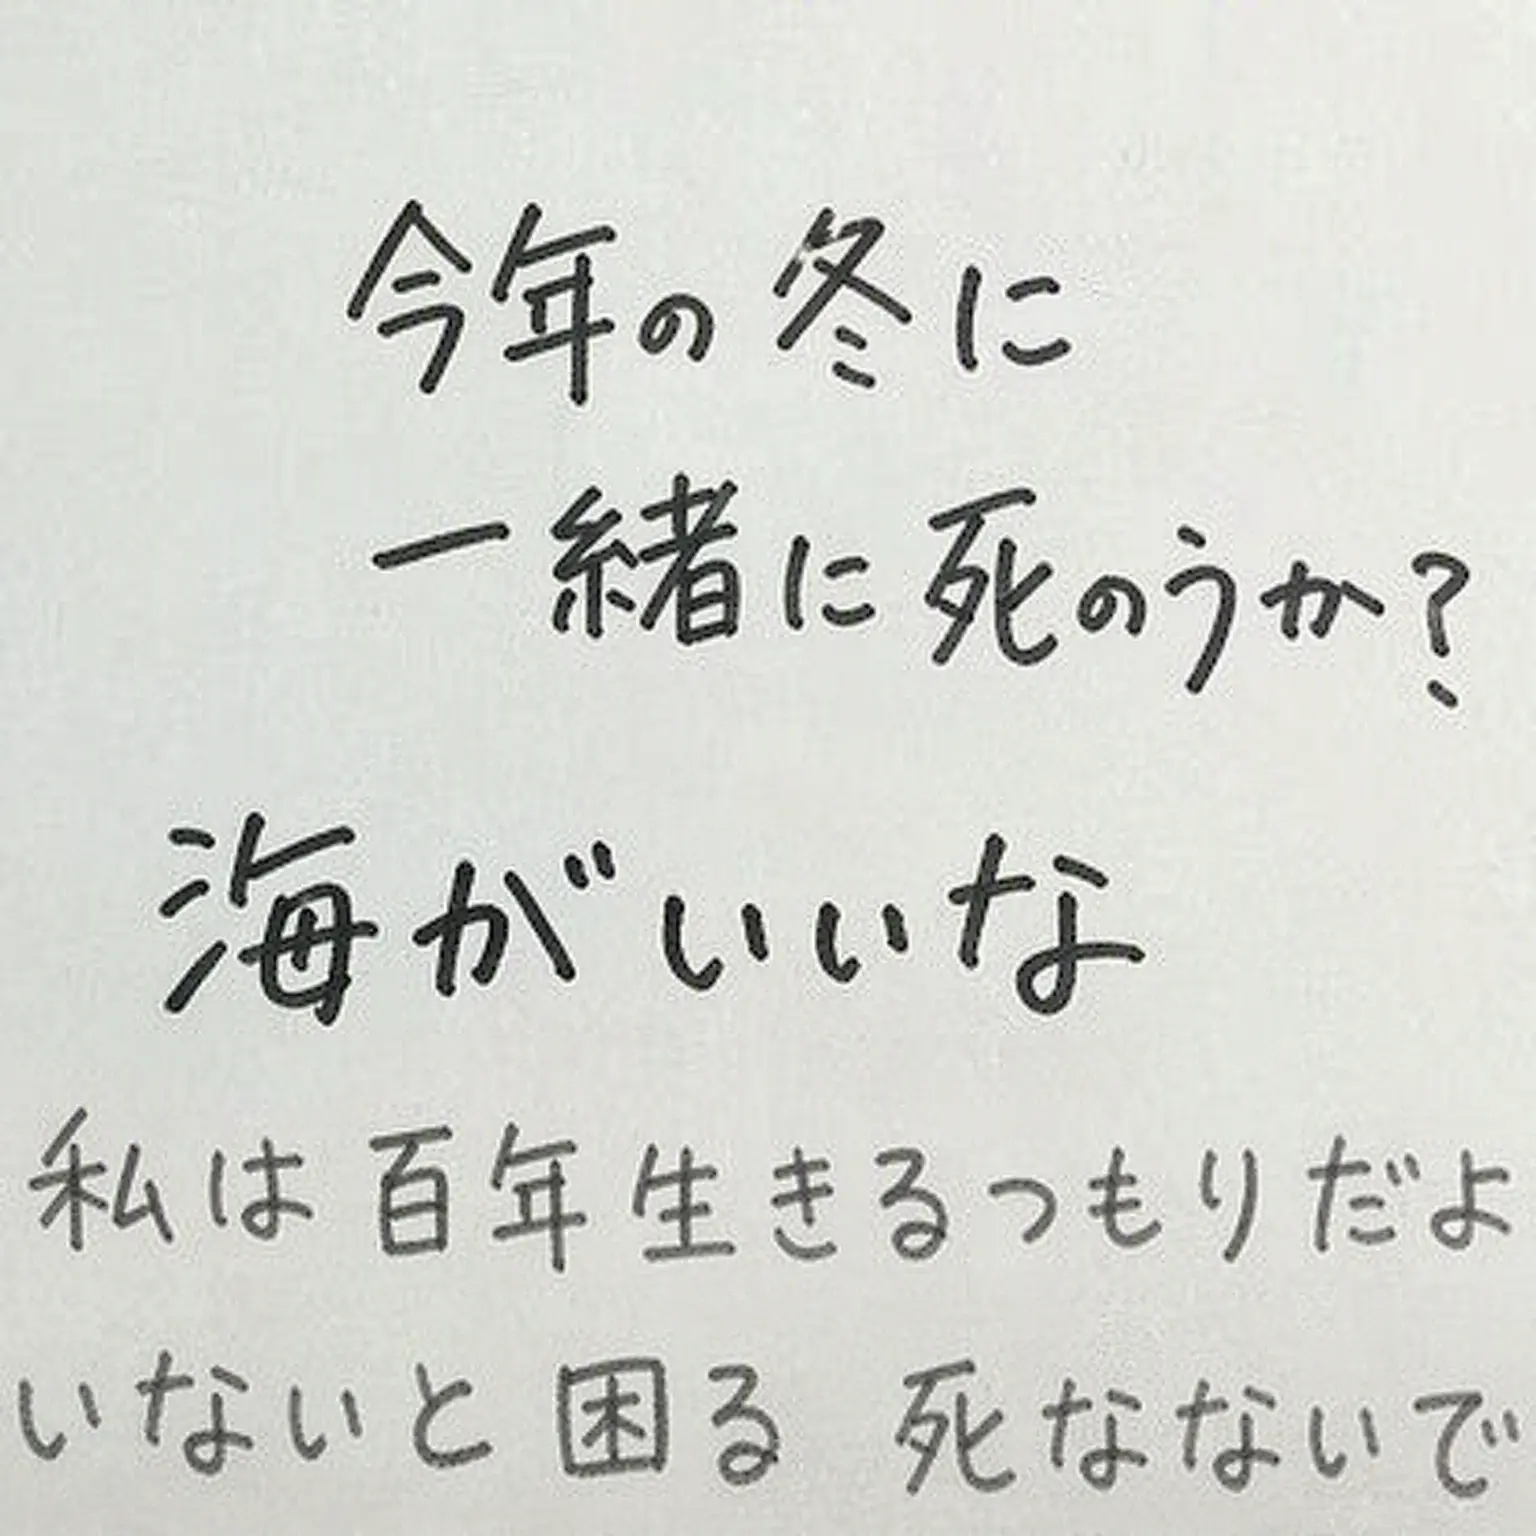 今年の冬に
一緒に死のうか?
海がいいな
私は百年生きるつもりだよ
いないと困る 死なないで